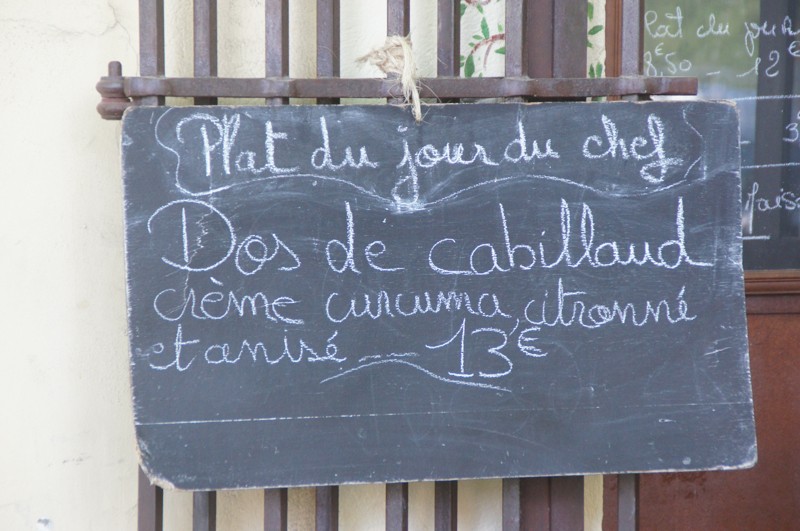 Plat du jour du chef
Dos de cabillaud
crème curcuma, citronné
et anisé --- 13€
plat du jour
8€,50 - 12€